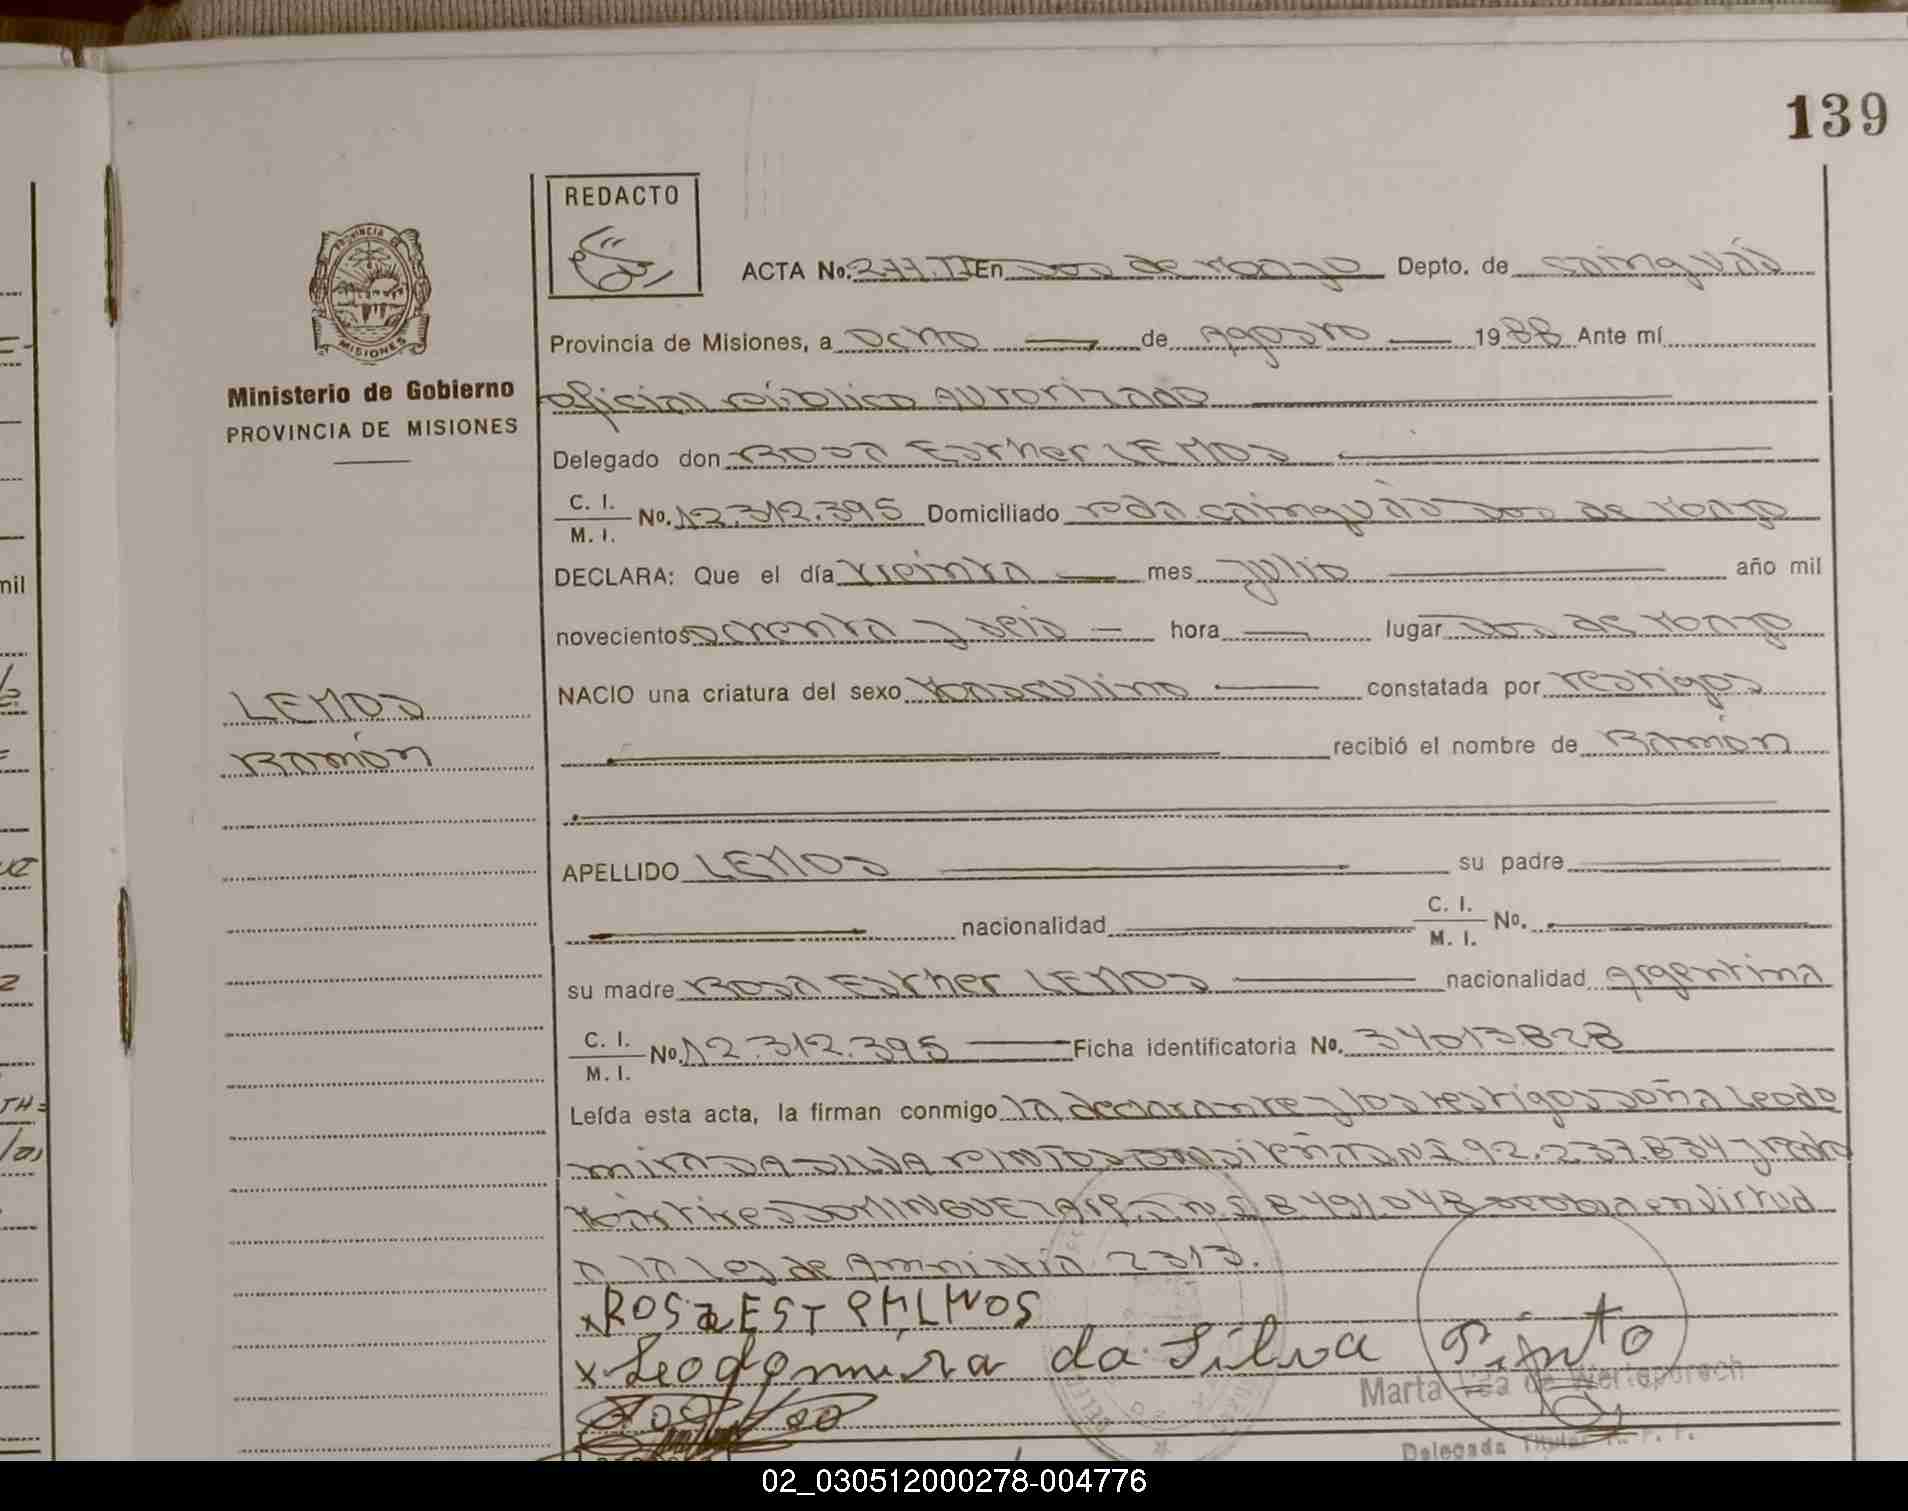 139
REDACTO
PROVINCIA DE
MISIONES
Ministerio de Gobierno
PROVINCIA DE MISIONES
ACTA No. 277.II En Dos de Mayo Depto. de Cainguás
Provincia de Misiones, a ocho de Agosto 1988 Ante mí
oficial público autorizado
Delegado don Rosa Esther LEMOS
C. I. / M. I. No. 12.312.395 Domiciliado Pcia Cainguás Dos de Mayo
DECLARA: Que el día treinta mes Julio año mil
novecientos ochenta y seis hora lugar Dos de Mayo
NACIO una criatura del sexo Masculino constatada por testigos
recibió el nombre de Ramón
LEMOS
Ramón
APELLIDO LEMOS su padre
nacionalidad C. I. / M. I. No.
su madre Rosa Esther LEMOS nacionalidad Argentina
C. I. / M. I. No. 12.312.395 Ficha identificatoria No. 34013828
Leída esta acta, la firman conmigo la declarante y los testigos Doña Leodo
mira DA SILVA PINTOS brasileña D.N.I 92.237.834 y
Martires DOMINGUEZ Arg. D.N.I 8.491.048 en virtud
a la Ley de Amnistía 2313.
x ROSa EST
x Leodomira da Silva Pinto
Marta de
Delegada Titular
02_030512000278-004776